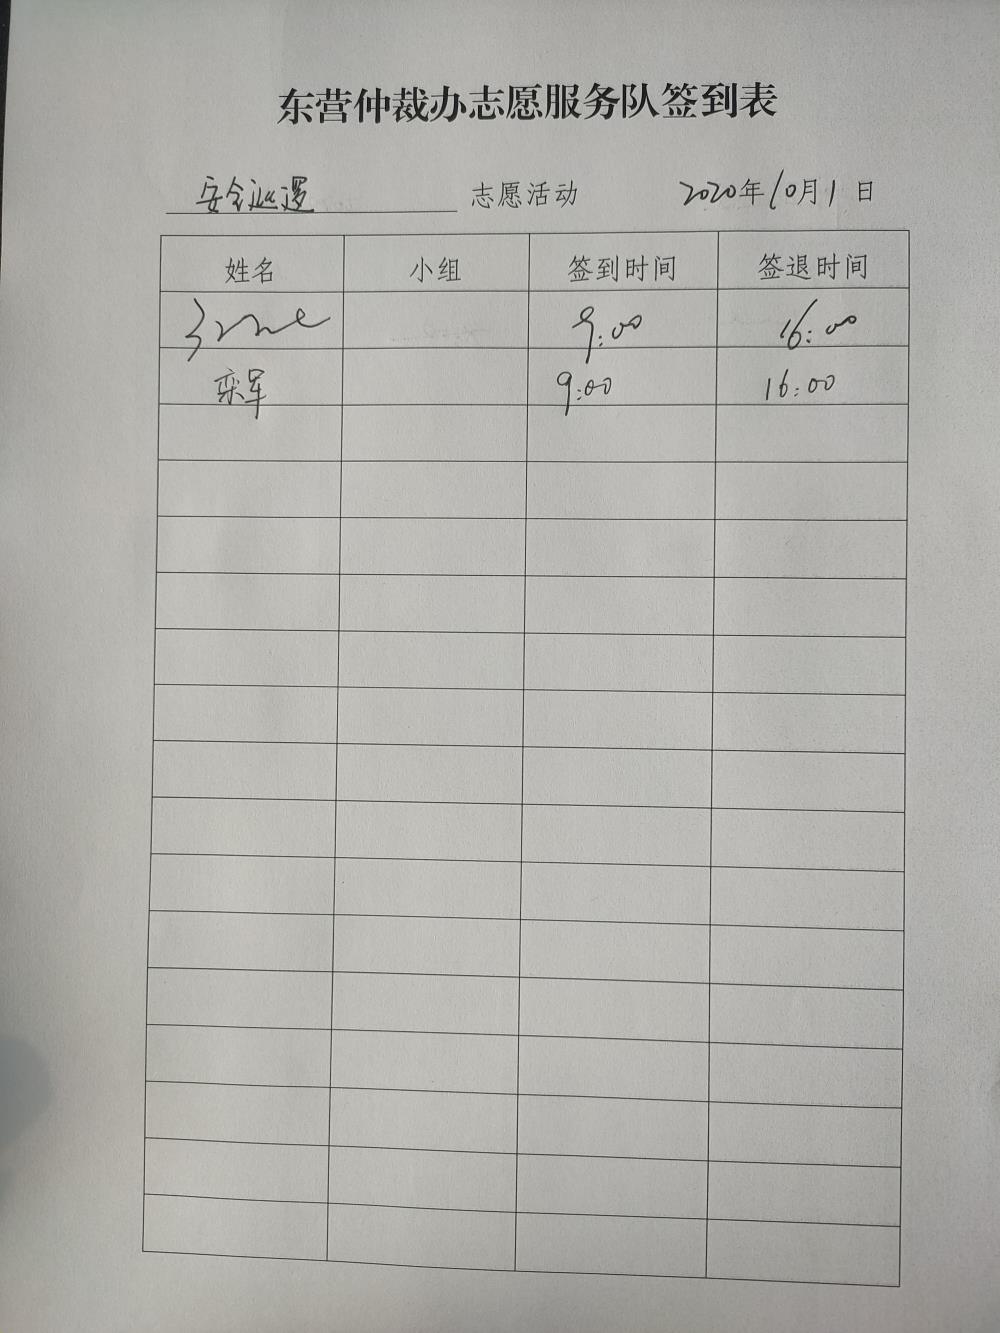 东营仲裁办志愿服务队签到表
安全巡逻 志愿活动 2020年10月1日
姓名 小组 签到时间 签退时间
9:00 16:00
栾军 9:00 16:00